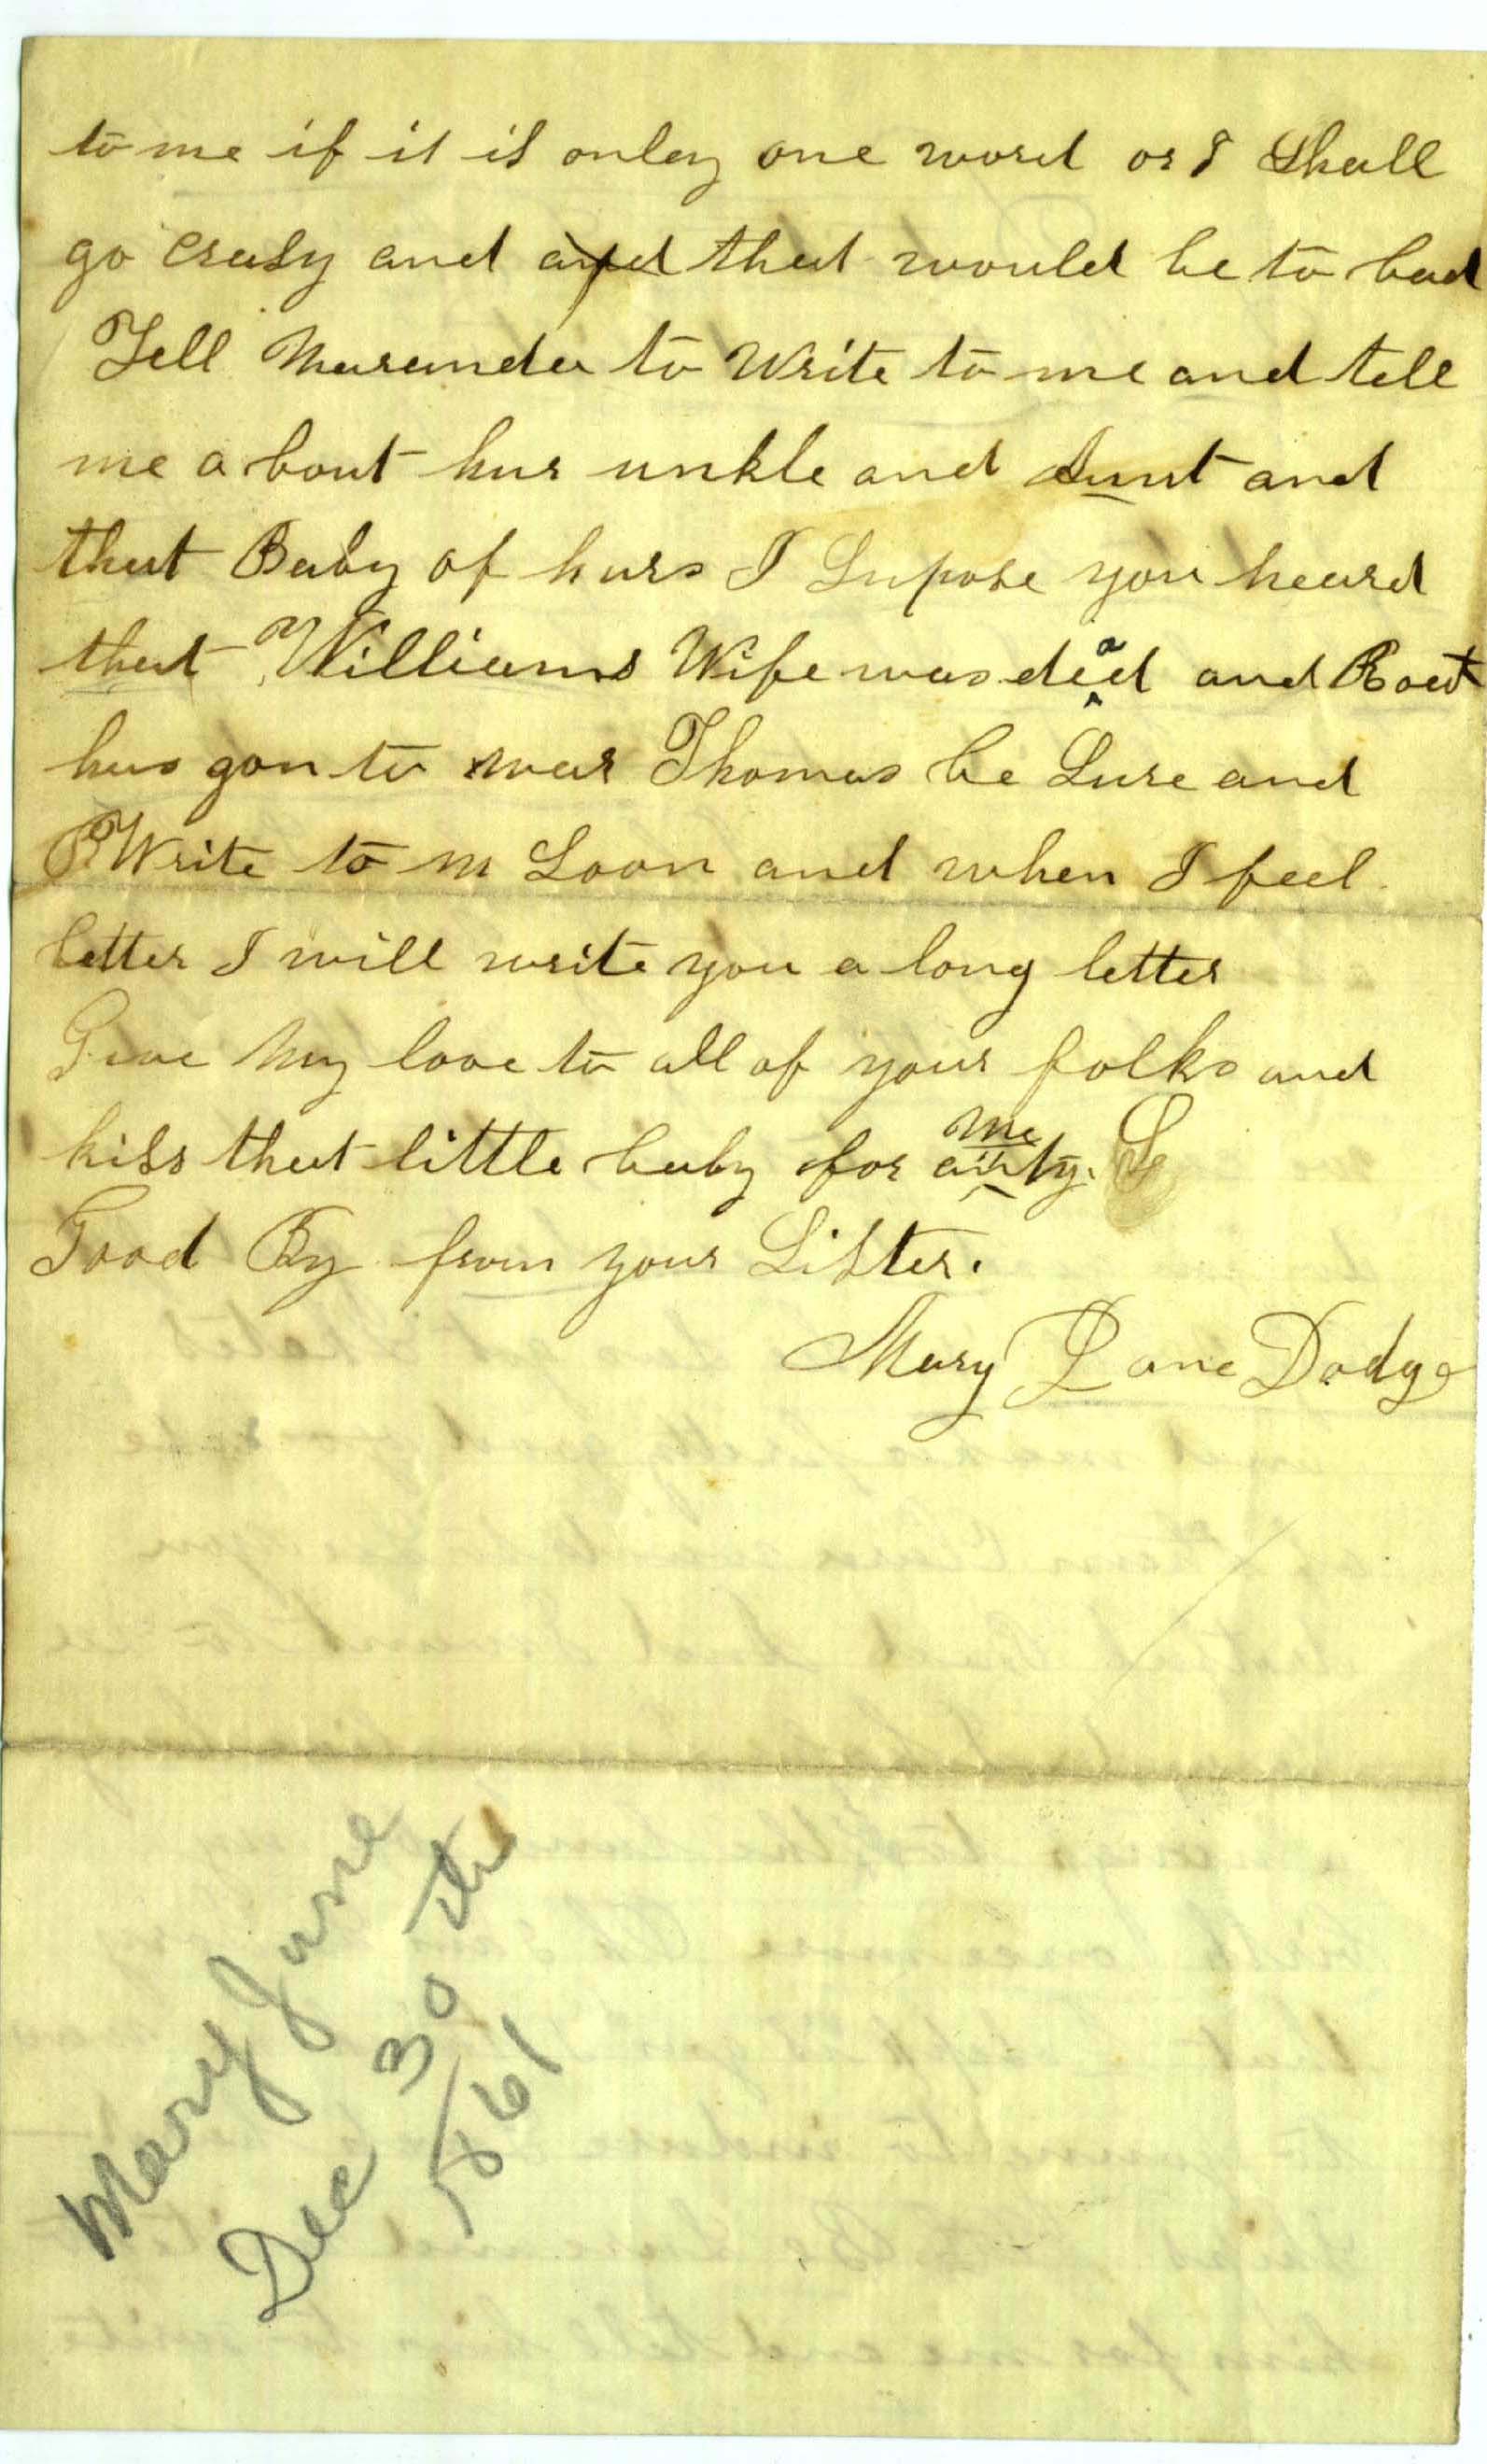 to me if it is onley one word or I Shall
go Crasy and and that would be to bad
Tell Maranda to Write to me and tell
me a bout hur unkle and Aunt and
that Baby of hurs I Supose you heard
that Williams Wife was dead and
has gon to war Thomas be Sure and
Write to m Soon and when I feel
better I will write you a long letter
Give my love to all of your folks and
kiss that little baby for me
Good By from your Sister.
Mary Jane Dodge
Mary Jane
Dec 30 th
1861